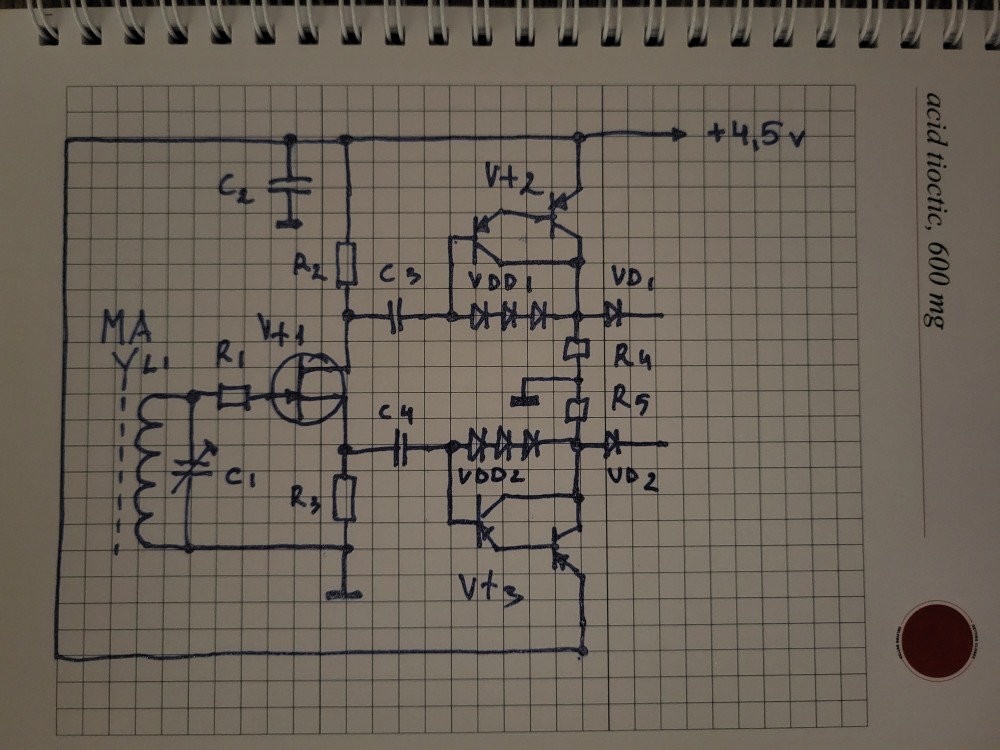 +4,5v
C2
Vt2
R2
C3
VDD1
VD1
MA
L1
R1
Vt1
R4
R5
C4
C1
R3
VDD2
VD2
Vt3
acid tioctic, 600 mg